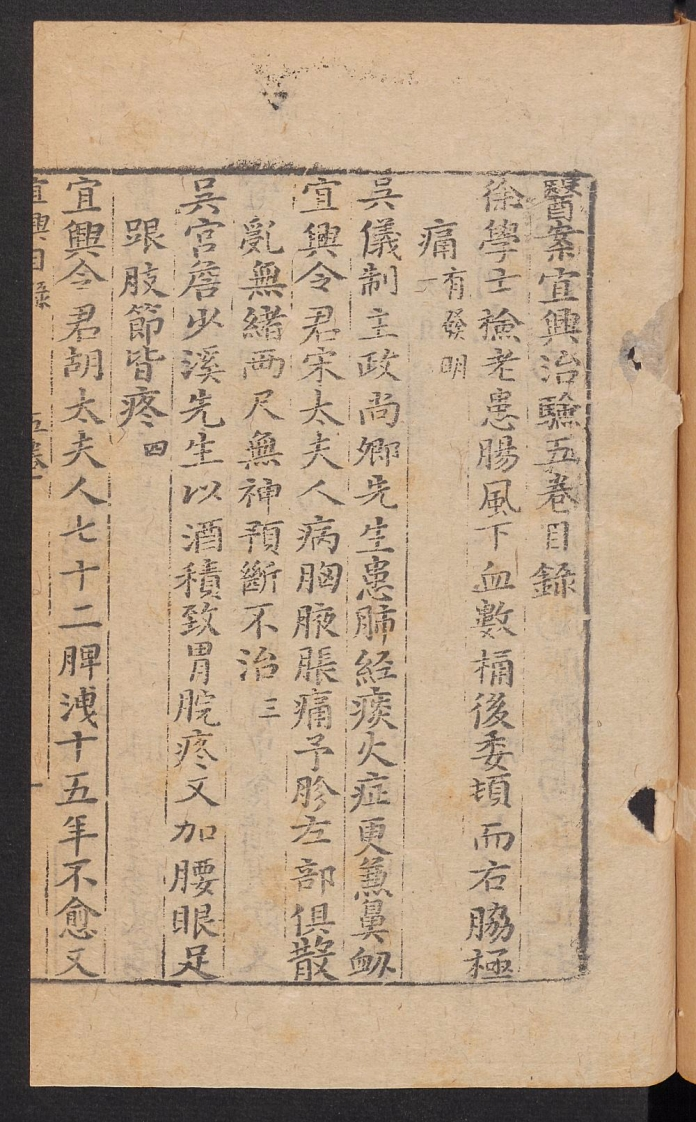 醫案宜興治驗五卷目錄
徐學士檢老患腸風下血數桶後委頓而右脇極
痛 有發明 一
吳儀制主政尚卿先生患肺經痰火症更兼鼻衂
宜興令君宋太夫人病胸腋脹痛予胗左部俱散
亂無緒兩尺無神預斷不治 三
吳宮詹少溪先生以酒積致胃脘疼又加腰眼足
跟肢節皆疼 四
宜興令君胡太夫人七十二脾洩十五年不愈又
宜興目錄 五卷 一